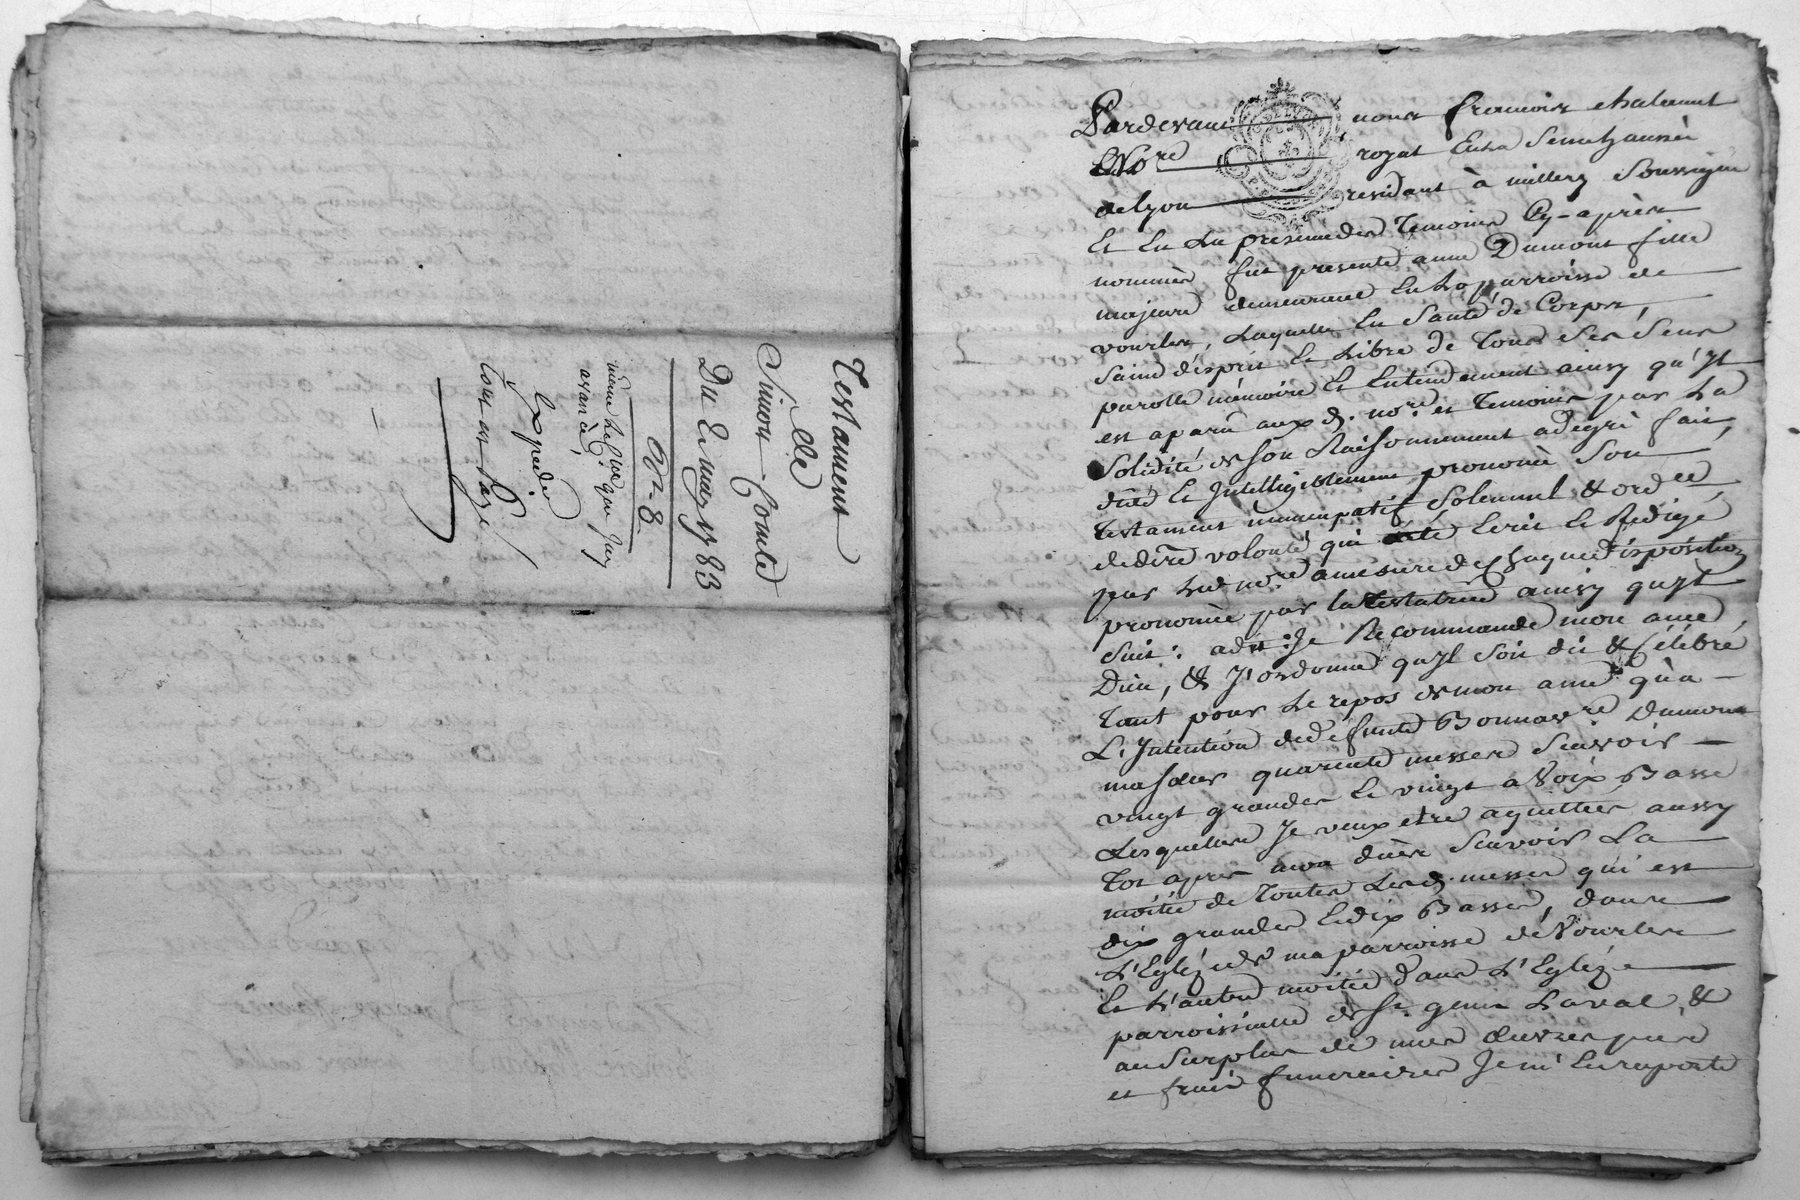 Testament
Simon Coulle
Du 2e may 1783
N. 8
expedié
Pardevant nous francois chalumel
Nore royal En la Senechaussée
de Lyon residant à millery Soussigné
Et En La presence des Temoins Cy-après
nommés fut presente anne Dumont fille
majeure demeurant En la parroisse de
vourles, Laquelle En Santé de Corps,
Saine d'esprit Et Libre de Tous Ses Sens
parolle mémoire Et Entendement ainsy qu'yl
est aparu aux d. nore et Temoins par La
Solidité de Son Raisonnement a degré fait,
dicté Et Intelligiblement prononcé Son
Testament nuncupatif Solemnel & ordce
de dre volonté qui été Ecrit Et Redigé
par Led nore a mesure de Chaque disposition
prononcée par la testatrice ainsy qu'yl
Suit : a dit : Je Recommande mon ame
Dieu, & J'ordonne qu'yl Soit dit & Célébré
Tant pour Le repos de mon ame qu'a
L'Intention de défunte Bonnavre Dumont
ma Sœur quarente messes Scavoir
vingt grandes Et vingt a Voix Basse
Lesquelles Je veux etre aquittées aussy
Tot après mon décès Scavoir La
moitié de Toutes Lesd. messes qui est
dix grandes Et dix Basses, dans
L'Eglize de ma parroisse de Vourles
Et L'autre moitié dans L'Eglize
parroissialle de St. genis Laval, &
au Surplus de mes œuvres pies
et frais funeraires Je m'En raporte